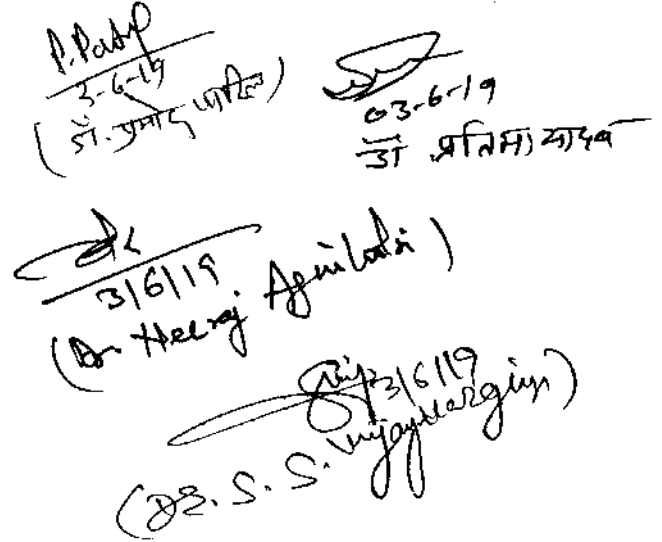 P. Patil
3-6-19
(डॉ. प्रमोद पाटिल)
03-6-19
डॉ प्रतिमा यादव
3/6/19
(Dr. Heeraj Agnihotri)
3/6/19
(Dr. S. S. Vijayvargiya)